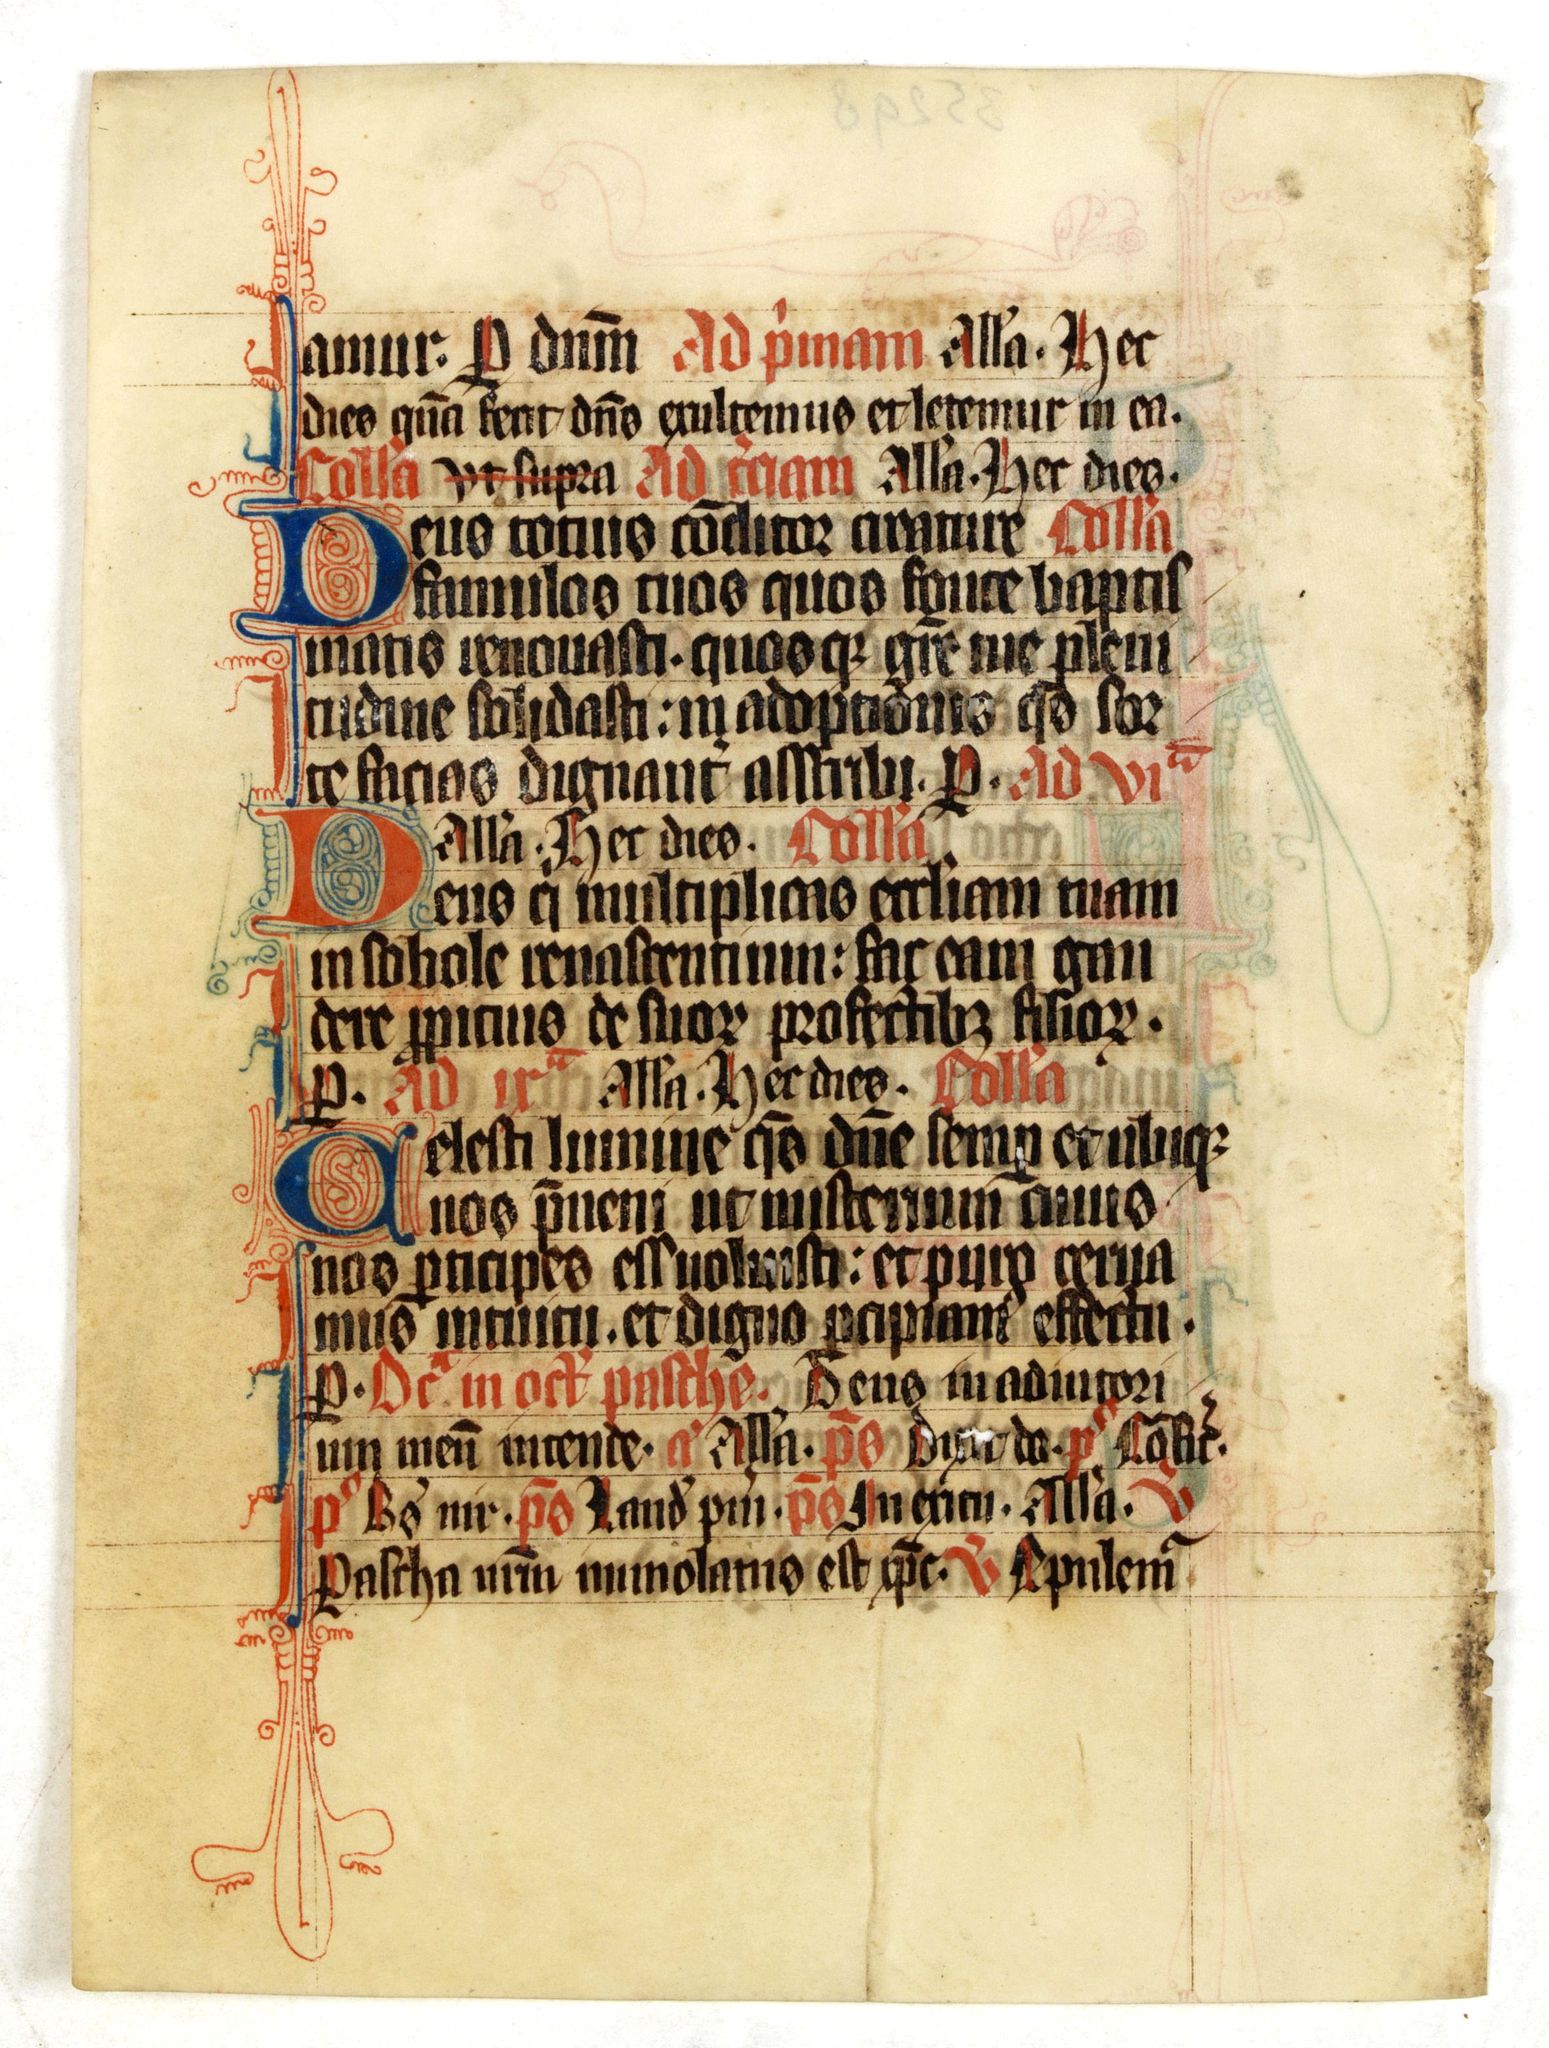 amur. P dnm̄ Ad p̍mam All̃a. Hec
dies quā fecit dn̄s exultemus et letemur in ea.
Coll̃a vt supra Ad t̃ciam All̃a. Hec dies.
Deus totius cōditor creature Coll̃a
famulos tuos quos fonte baptis
matis renouasti. quosqꝫ gr̄e tue pleni
tudine solidasti: in adoptiōnis qs̄ sor
te facias dignant̓ asscribi. P. Ad viᵃ
All̃a. Hec dies. Coll̃a
Deus q̍ multiplicas eccl̃iam tuam
in sobole renascentium: fac eam gau
dere ꝓpitius de suoꝝ profectibꝫ filioꝝ.
P. Ad ixᵃ All̃a. Hec dies. Coll̃a
Celesti lumine qs̄ dn̄e semꝑ et ubiqꝫ
nos p̄ueni ut misterium̄ cuius
nos ꝑticipes eſſ uoluisti: et puro cerna
mus intuitu. et digno ꝑcipiam᷒ effectu.
P. Dc̄ᵃ in oct̃ pasche. Deus in adiutori
um meū intende. a᷒ All̃a. p̄s Dixit do. pˢ Cōfit̃.
pˢ Bs̄ uir. p̄s Laud̓ pu͛i. p̄s In exitu. All̃a. V
Pascha nrm̄ immolatus est xp̄c. V Epulem᷒
35298